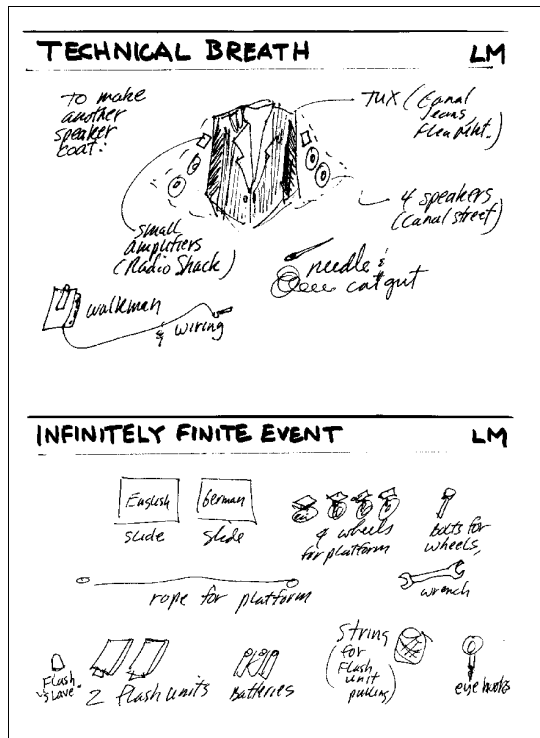 TECHNICAL BREATH LM
to make
another
speaker
coat:
TUX (Canal
Jeans
Flea Mkt.)
4 speakers
(Canal street)
small
amplifiers
(Radio Shack)
needle &
catgut
walkman
& wiring
INFINITELY FINITE EVENT LM
English
slide
German
slide
4 wheels
for platform
Bolts for
wheels,
rope for platform
wrench
Flash
slave
2 flash units
Batteries
String
(for
Flash
unit
pulling)
eye hooks